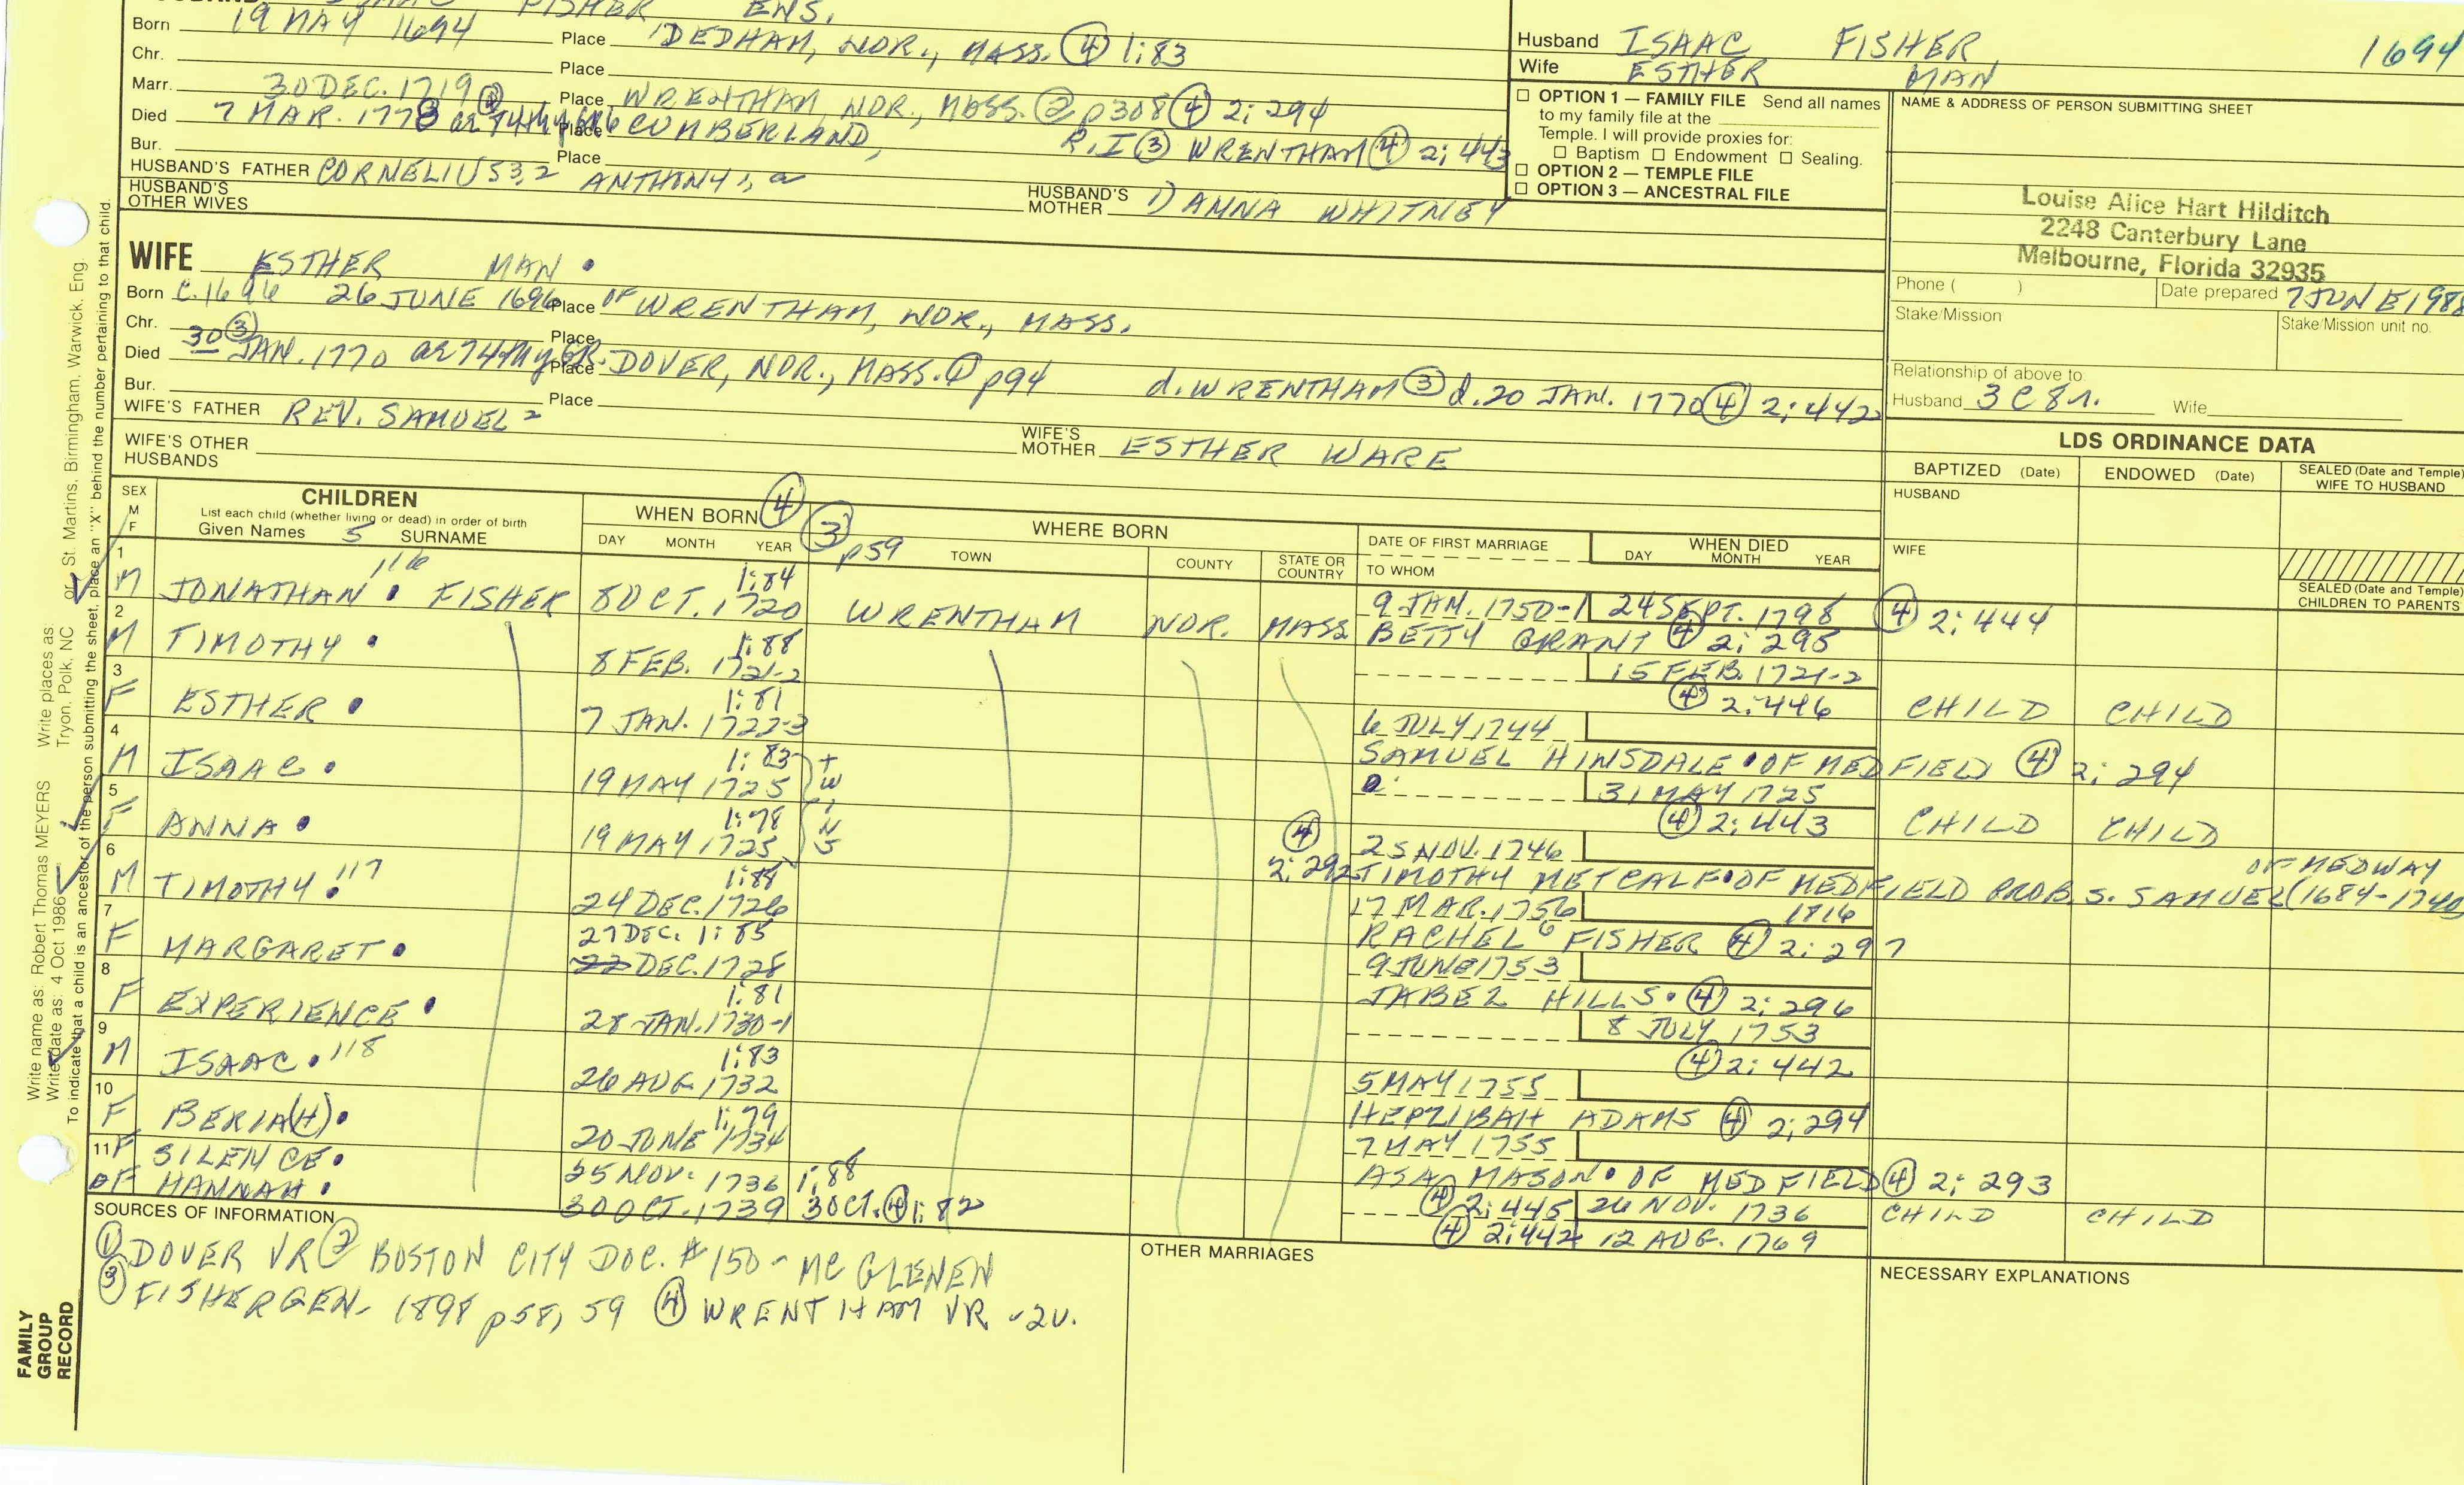 FISHER ENS.
Born 19 MAY 1694 Place DEDHAM, NOR., MASS. ④ 1:83
Chr. Place
Marr. 30 DEC. 1719 Place WRENTHAM, NOR., MASS. ② p308 ④ 2:294
Died 7 MAR. 1778 Place CUMBERLAND, R.I ③ WRENTHAM ④ 2:443
Bur. Place
HUSBAND'S FATHER CORNELIUS 3,2 ANTHONY 1,
HUSBAND'S MOTHER 1) ANNA WHITNEY
HUSBAND'S OTHER WIVES
Husband ISAAC FISHER 1694
Wife ESTHER MAN
☐ OPTION 1 — FAMILY FILE Send all names
to my family file at the
Temple. I will provide proxies for:
☐ Baptism ☐ Endowment ☐ Sealing.
☐ OPTION 2 — TEMPLE FILE
☐ OPTION 3 — ANCESTRAL FILE
NAME & ADDRESS OF PERSON SUBMITTING SHEET
Louise Alice Hart Hilditch
2248 Canterbury Lane
Melbourne, Florida 32935
Phone ( ) Date prepared 7 JUNE 1988
Stake/Mission Stake/Mission unit no.
Relationship of above to:
Husband 3C8r. Wife
WIFE ESTHER MAN •
Born C. 1696 26 JUNE 1696 Place OF WRENTHAM, NOR., MASS.
Chr. Place
Died 30 ③ JAN. 1770 ae 74 my GR. Place DOVER, NOR., MASS. ① p94 d. WRENTHAM ③ d. 20 JAN. 1770 ④ 2:442
Bur. Place
WIFE'S FATHER REV. SAMUEL 2
WIFE'S MOTHER ESTHER WARE
WIFE'S OTHER HUSBANDS
LDS ORDINANCE DATA
BAPTIZED (Date) ENDOWED (Date) SEALED (Date and Temple) WIFE TO HUSBAND
HUSBAND
WIFE
SEALED (Date and Temple) CHILDREN TO PARENTS
SEX M F
CHILDREN
List each child (whether living or dead) in order of birth
Given Names 5 SURNAME
WHEN BORN ④ DAY MONTH YEAR
③ p59 WHERE BORN TOWN COUNTY STATE OR COUNTRY
DATE OF FIRST MARRIAGE TO WHOM
WHEN DIED DAY MONTH YEAR
1 M JONATHAN • 116 FISHER 1:84 8 OCT. 1720 WRENTHAM NOR. MASS 9 JAN. 1750-1 24 SEPT. 1798 ④ 2:444
BETTY GRANT ④ 2:295
2 M TIMOTHY • 1:88 8 FEB. 1721-2 15 FEB. 1721-2
④ 2:446 CHILD CHILD
3 F ESTHER • 1:81 7 JAN. 1722-3 6 JULY 1744
SAMUEL HINSDALE • OF MEDFIELD ④ 2:294
4 M ISAAC • 1:83 19 MAY 1725 TWINS 31 MAY 1725
④ 2:443 CHILD CHILD
5 F ANNA • 1:78 19 MAY 1725 ④ 2:292 25 NOV. 1746
TIMOTHY METCALF • OF MEDFIELD PROB. S. SAMUEL (1684-1740 OF MEDWAY
6 M TIMOTHY • 117 1:88 24 DEC. 1726 17 MAR. 1756 1816
RACHEL 6 FISHER ④ 2:297
7 F MARGARET • 27 DEC. 1:85 22 DEC. 1728 9 JUNE 1753
JABEZ HILLS • ④ 2:296
8 F EXPERIENCE • 1:81 28 JAN. 1730-1 8 JULY 1753
④ 2:442
9 M ISAAC • 118 1:83 26 AUG. 1732 5 MAY 1755
HEPZIBAH ADAMS ④ 2:294
10 F BERIA(H) • 1:79 20 JUNE 1734 7 MAY 1755
ASA MASON • OF MEDFIELD ④ 2:293
11 F SILENCE • 25 NOV. 1736 1:88 ④ 2:445 26 NOV. 1736 CHILD CHILD
F HANNAH • 30 OCT. 1739 3 OCT. ④ 1:82 ④ 2:442 12 AUG. 1769
SOURCES OF INFORMATION
① DOVER VR ② BOSTON CITY DOC. #150 - MC GLENEN
③ FISHER GEN. 1898 p58, 59 ④ WRENTHAM VR - 2V.
OTHER MARRIAGES
NECESSARY EXPLANATIONS
FAMILY GROUP RECORD
Write name as: Robert Thomas MEYERS Write places as:
Write date as: 4 Oct 1986 Tryon, Polk, NC or St. Martins, Birmingham, Warwick, Eng.
To indicate that a child is an ancestor of the person submitting the sheet, place an "X" behind the number pertaining to that child.